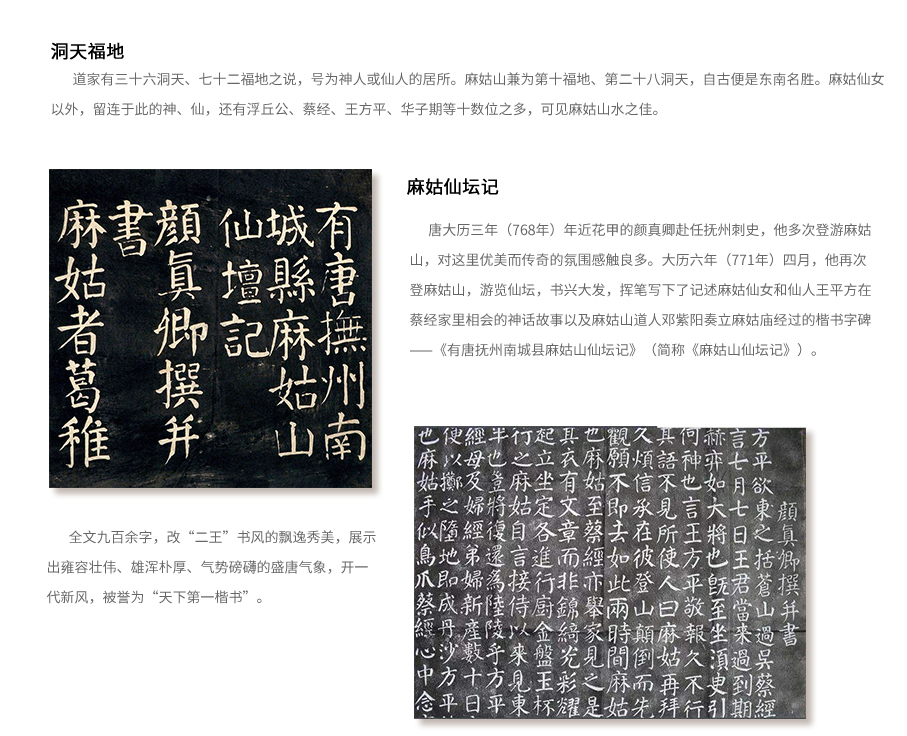 洞天福地
道家有三十六洞天、七十二福地之说，号为神人或仙人的居所。麻姑山兼为第十福地、第二十八洞天，自古便是东南名胜。麻姑仙女
以外，留连于此的神、仙，还有浮丘公、蔡经、王方平、华子期等十数位之多，可见麻姑山水之佳。
有唐撫州南
城縣麻姑山
仙壇記
顔真卿撰并
書
麻姑者葛稚
麻姑仙坛记
唐大历三年（768年）年近花甲的颜真卿赴任抚州刺史，他多次登游麻姑
山，对这里优美而传奇的氛围感触良多。大历六年（771年）四月，他再次
登麻姑山，游览仙坛，书兴大发，挥笔写下了记述麻姑仙女和仙人王平方在
蔡经家里相会的神话故事以及麻姑山道人邓紫阳奏立麻姑庙经过的楷书字碑
——《有唐抚州南城县麻姑山仙坛记》（简称《麻姑山仙坛记》）。
全文九百余字，改“二王”书风的飘逸秀美，展示
出雍容壮伟、雄浑朴厚、气势磅礴的盛唐气象，开一
代新风，被誉为“天下第一楷书”。
顔真卿撰并書
方平欲東之括蒼山過吳蔡經
言七月七日王君當来過到期
赫弈如大將也旣至坐湏叟引
伺神也言王方平敬報久不行
其語不見所使人曰麻姑再拜
久煩信承在彼登山顛倒而先
觀願不即去如此兩時間麻姑
也麻姑至蔡經亦舉家見之是
其衣有文章而非錦綺光彩耀
起立坐定各進行廚金盤玉杯
行之麻姑自言接侍以来見東
半也豈將復還為陸陵乎方平
經母及婦經弟婦新產數十日
便以擲之墮地即成丹沙方平
也麻姑手似鳥爪蔡經心中念